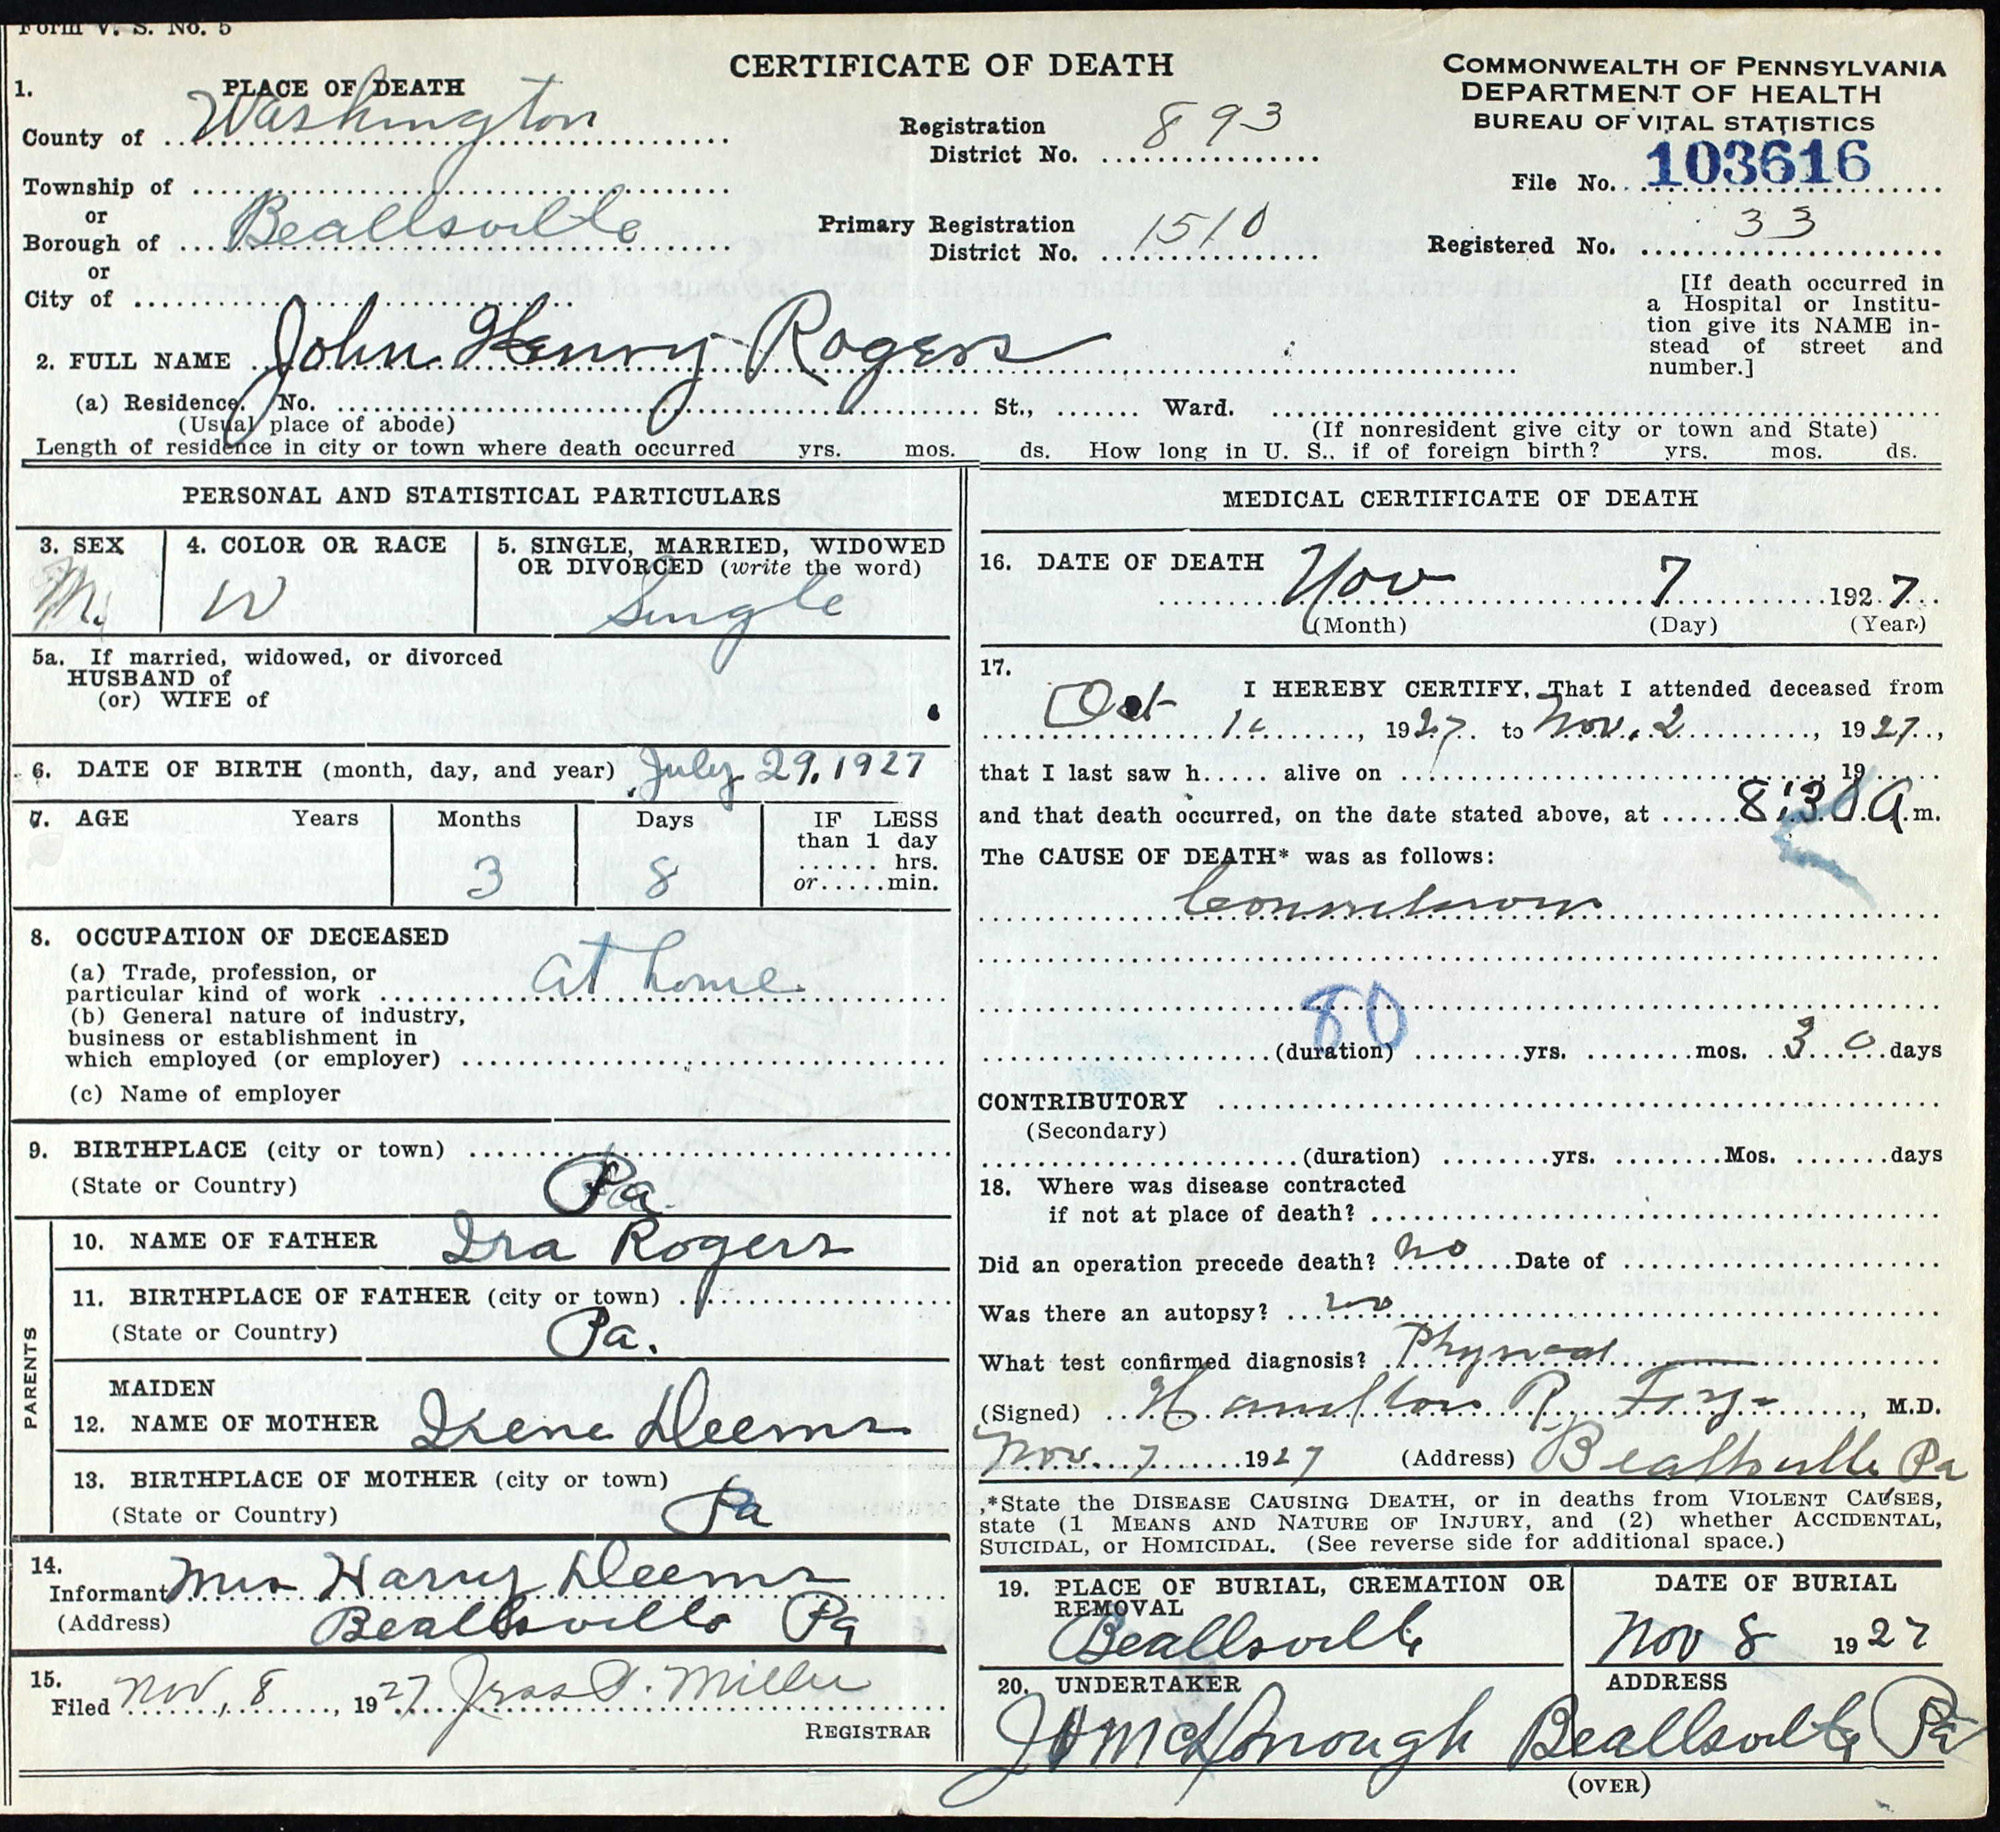 Form V. S. No. 5
CERTIFICATE OF DEATH
COMMONWEALTH OF PENNSYLVANIA
DEPARTMENT OF HEALTH
BUREAU OF VITAL STATISTICS
1. PLACE OF DEATH
County of Washington
Registration District No. 893
File No. 103616
Township of
or
Borough of Beallsville
Primary Registration District No. 1510
Registered No. 33
or
City of
[If death occurred in
a Hospital or Institu-
tion give its NAME in-
stead of street and
number.]
2. FULL NAME John Henry Rogers
(a) Residence. No. St., Ward.
(Usual place of abode) (If nonresident give city or town and State)
Length of residence in city or town where death occurred yrs. mos. ds. How long in U. S., if of foreign birth? yrs. mos. ds.
PERSONAL AND STATISTICAL PARTICULARS
3. SEX M.
4. COLOR OR RACE W
5. SINGLE, MARRIED, WIDOWED
OR DIVORCED (write the word)
Single
5a. If married, widowed, or divorced
HUSBAND of
(or) WIFE of
6. DATE OF BIRTH (month, day, and year) July 29, 1927
7. AGE Years Months Days IF LESS
than 1 day
hrs.
or.....min.
3 8
8. OCCUPATION OF DECEASED
(a) Trade, profession, or
particular kind of work at home
(b) General nature of industry,
business or establishment in
which employed (or employer)
(c) Name of employer
9. BIRTHPLACE (city or town)
(State or Country) Pa.
PARENTS
10. NAME OF FATHER Ira Rogers
11. BIRTHPLACE OF FATHER (city or town)
(State or Country) Pa.
MAIDEN
12. NAME OF MOTHER Irene Deems
13. BIRTHPLACE OF MOTHER (city or town)
(State or Country) Pa
14.
Informant Mrs Harry Deems
(Address) Beallsville Pa
15.
Filed Nov, 8, 1927 Miller
REGISTRAR
MEDICAL CERTIFICATE OF DEATH
16. DATE OF DEATH
Nov 7 1927
(Month) (Day) (Year)
17.
I HEREBY CERTIFY, That I attended deceased from
Oct , 1927 to Nov. 2, 1927,
that I last saw h..... alive on , 19
and that death occurred, on the date stated above, at 8:30 A.m.
The CAUSE OF DEATH* was as follows:
Convulsions
80
(duration) yrs. mos. 30 days
CONTRIBUTORY
(Secondary)
(duration) yrs. Mos. days
18. Where was disease contracted
if not at place of death?
Did an operation precede death? no Date of
Was there an autopsy? no
What test confirmed diagnosis? Physical
(Signed) Hamilton R. , M.D.
Nov. 7 1927 (Address) Beallsville Pa
*State the DISEASE CAUSING DEATH, or in deaths from VIOLENT CAUSES,
state (1 MEANS AND NATURE OF INJURY, and (2) whether ACCIDENTAL,
SUICIDAL, or HOMICIDAL. (See reverse side for additional space.)
19. PLACE OF BURIAL, CREMATION OR
REMOVAL
Beallsville
DATE OF BURIAL
Nov 8 1927
20. UNDERTAKER
McDonough
ADDRESS
Beallsville Pa
(OVER)